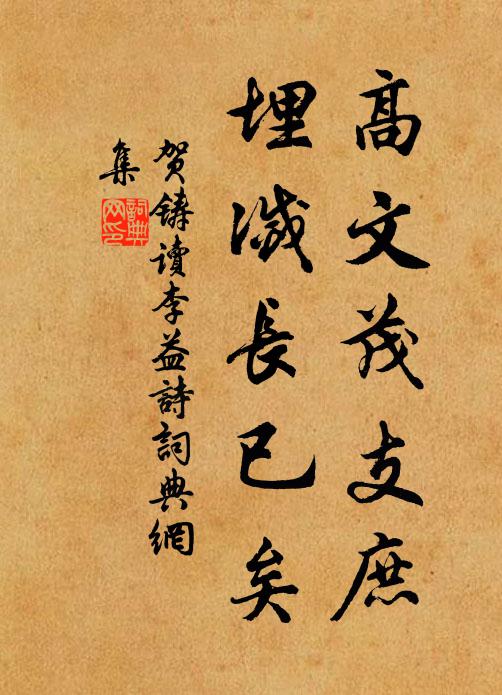 高文茂支庶
埋滅長已矣
賀鑄讀李益詩詞典網
集
詞典網印